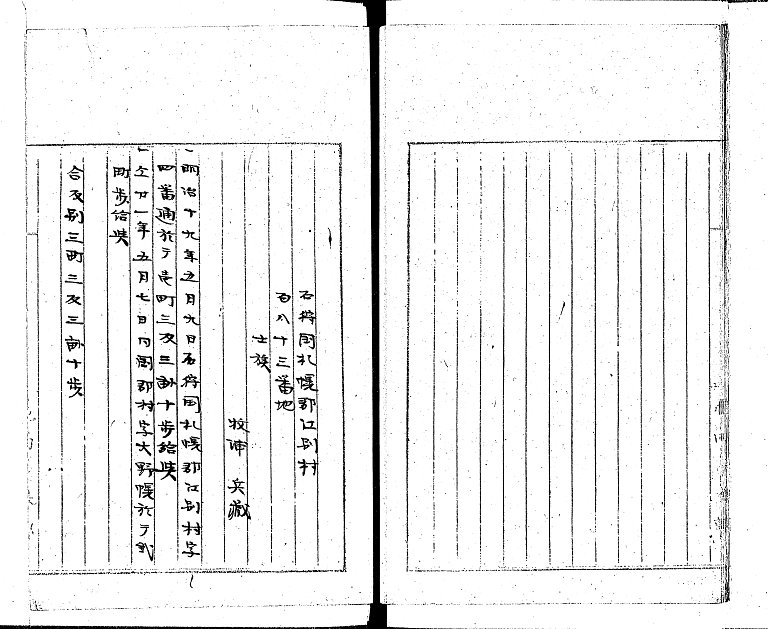 石狩国札幌郡江別村
百八十三番地
士族
牧 兵蔵
一明治十九年五月九日石狩国札幌郡江別村字
四番通於テ壱町三反三畝十歩給與
一仝廿一年五月七日同国郡村字大野幌於テ弐
町歩給與
合反別三町三反三畝十歩